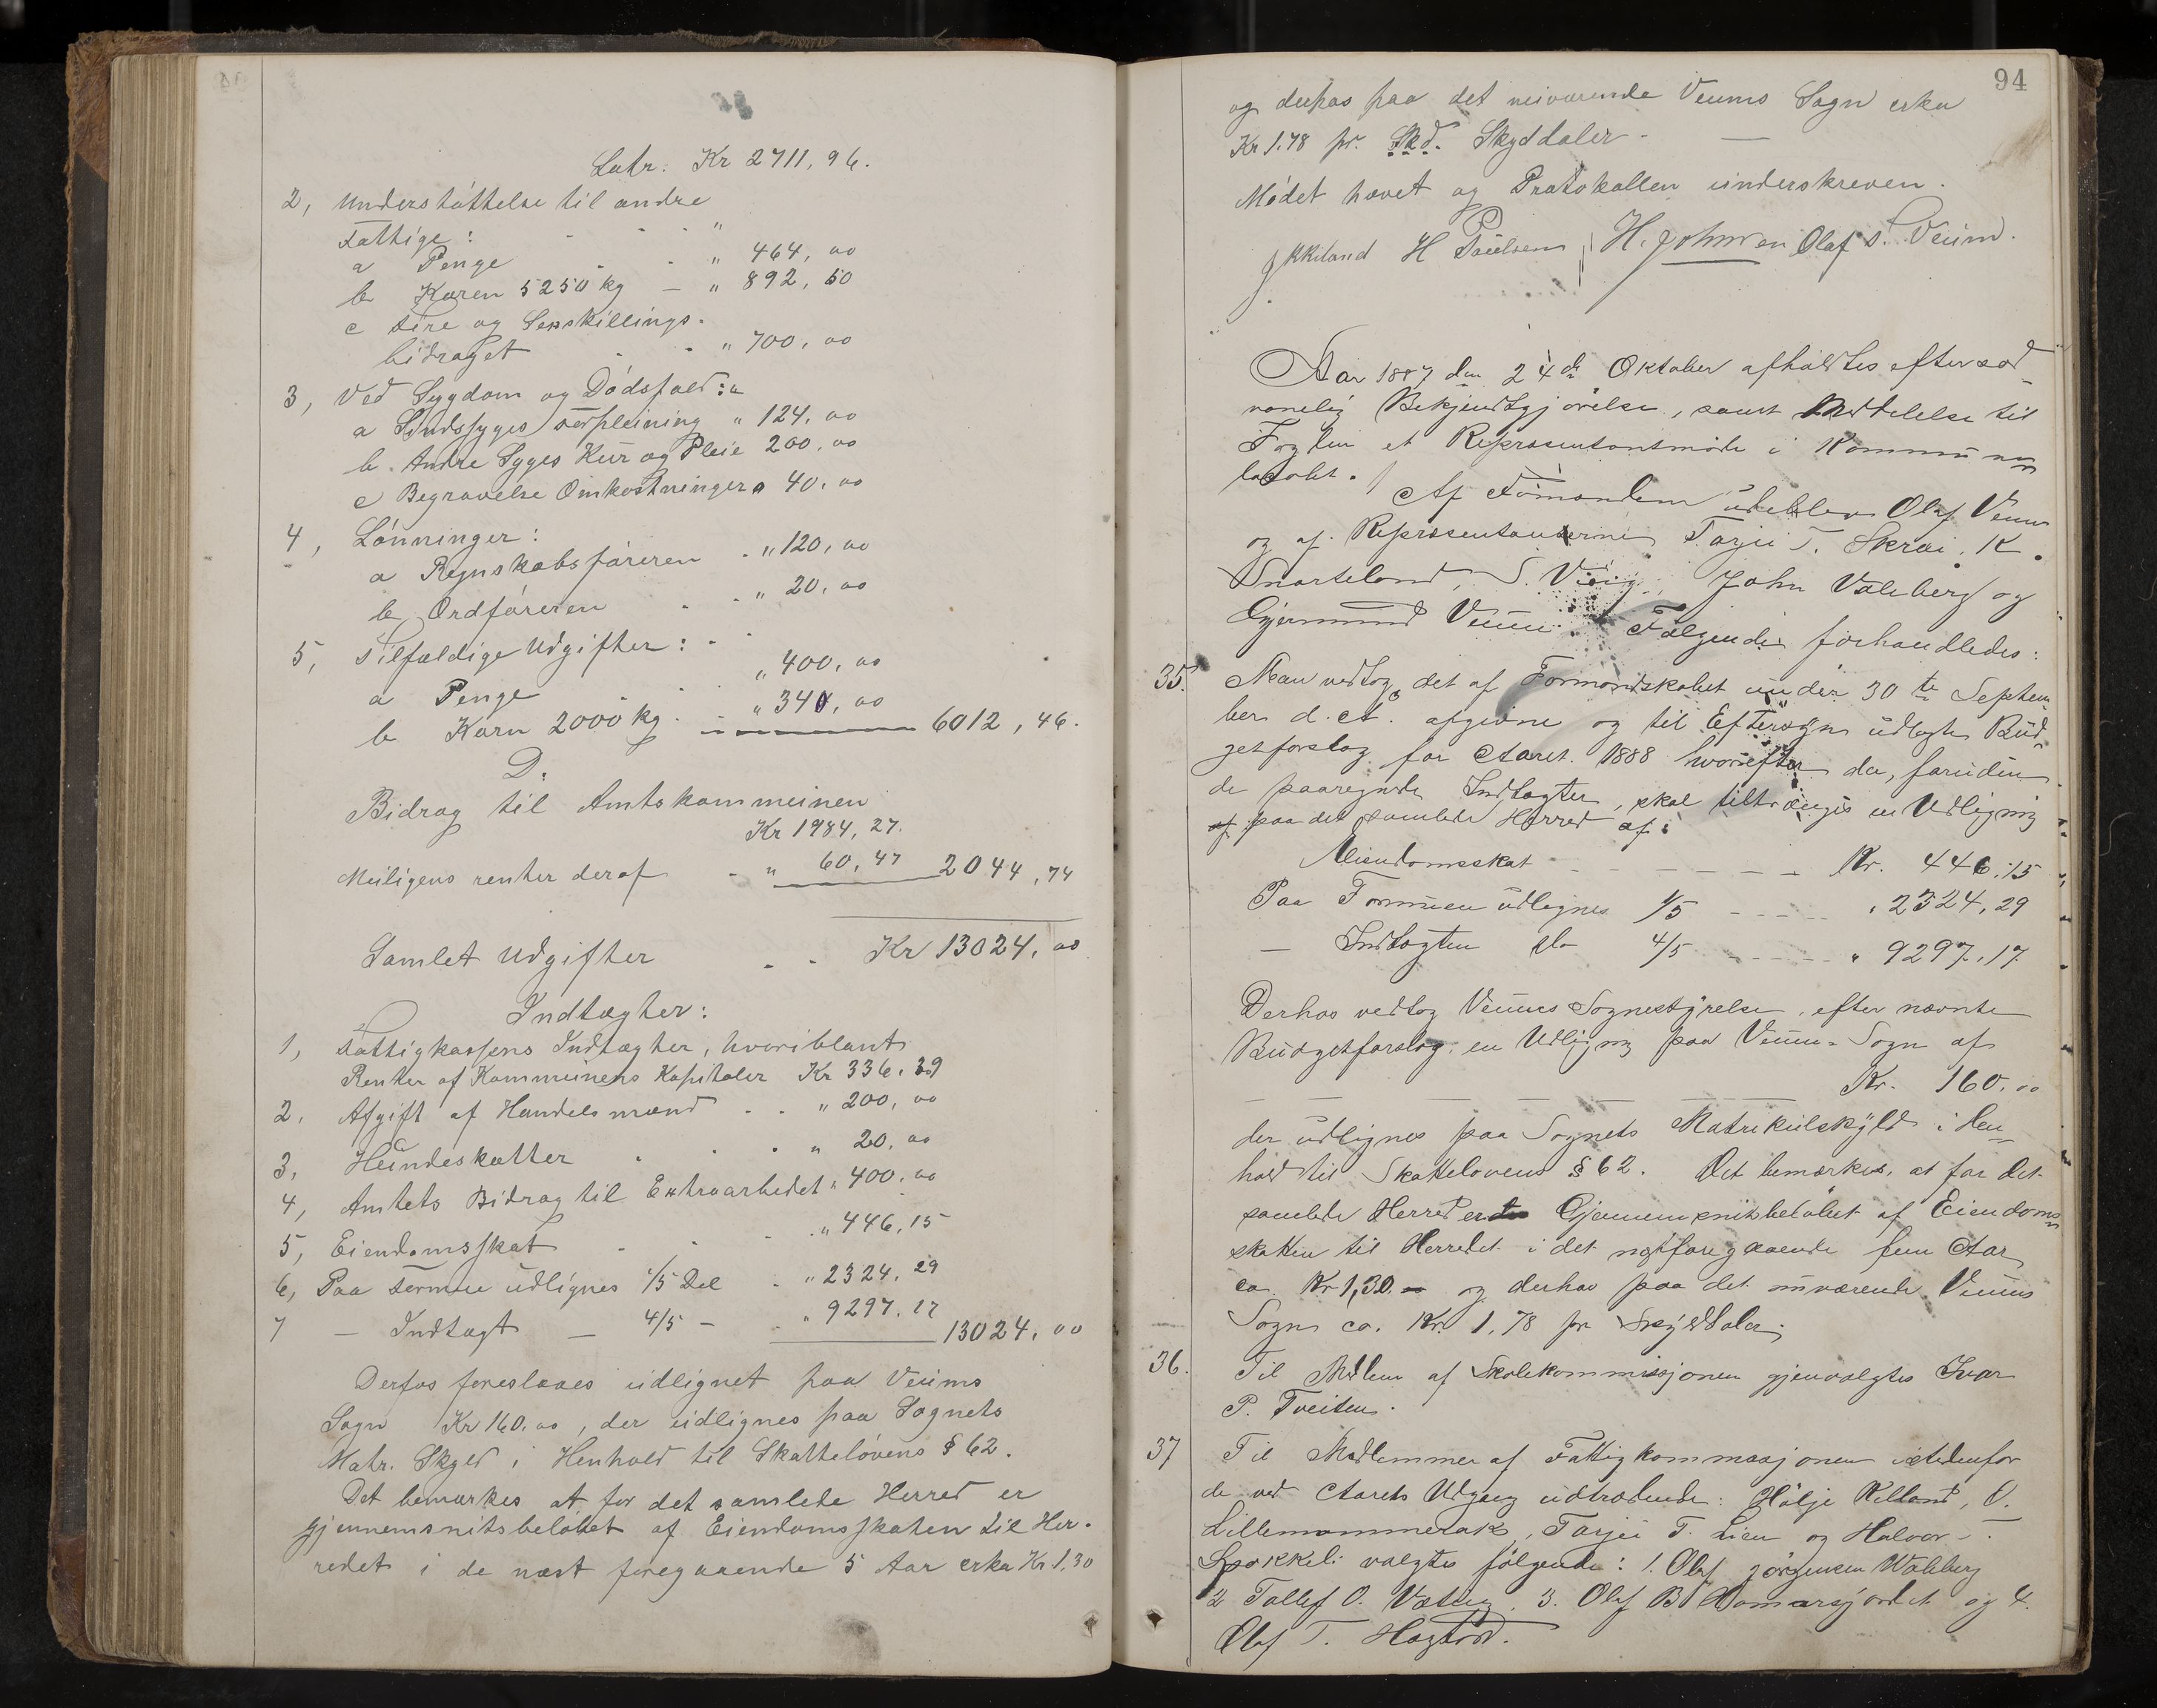 Latr. Kr 2711,96.
2, Understøttelse til andre
Fattige: - - - "
a Penge - - " 464,00
b Koren 5250 kg — " 892,50
c Fire og Sexskillings-
bidraget - - " 700,00
3, Ved Sygdom og Dødsfald:
a Sindssyges verpleining " 124,00
b. Andre Syges Kur og Pleie 200,00
c Begravelse Omkostninger 40,00
4, Lønninger:
a Regnskabsføreren - " 120,00
b Ordføreren - - " 20,00
5, Tilfældige Udgifter: -
a Penge - - " 400,00
b Korn 2000 kg. - " 340,00 6012,46.
D.
Bidrag til Amtskommunen
Kr 1984,27.
Meiligens renter deraf - " 60,47 2044,74
Samlet Udgifter - - Kr 13024,00
Indtægter:
1, Fattigkassens Indtægter, hvoriblant
Renter af Kommunens Kapitaler Kr 336,39
2. Afgift af Handelsmænd - - " 200,00
3, Hundeskatter - - - " 20,00
4, Amtets Bidrag til Extraarbeidet " 400,00
5, Eiendomsskat - - - " 446,15
6, Paa Formue udlignes 1/5 Del - " 2324,29
7 — Indtægt — 4/5 — - " 9297,17 13024,00
Derfos foreslaaes udlignet paa Veums
Sogn Kr 160,00, der udlignes paa Sognets
Matr. Skyld i Henhold til Skattelovens § 62.
Det bemærkes at for det samlede Herred er
gjennemsnitsbeløbet af Eiendomsskaten til Her-
redet i de næst foregaaende 5 Aar cirka Kr 1,30
94
og derhos paa det nuværende Veums Sogn cirka
Kr 1.78 pr. Skd. Skyddaler - —
Mødet hævet og Protokollen underskreven.
H Poulsen H. Johnsen Olaf S. Veum.
Aar 1887 den 24de Oktober afholdtes efter sæd-
vanelig Bekjendtgjørelse, samt Meddelelse til
Fogden et Repræsentantmøde i Kommune
lokalet. Af Formændene udeblev Olaf Veum
og af Repræsentanterne Tarjei T. Skrei, K.
Snarteland, S. Vinig, John Valeberg og
Gjermund Veum. Følgende forhandledes:
35. Man vedtog det af Formandskabet under 30te Septem
ber d. A. afgivne og til Eftersyn udlagte Bud-
getforslag for Aaret 1888 hvorefter da, foruden
de paaregnede Indtægter, skal tiltrænges en Udligning
af paa det samlede Herred af:
Eiendomsskat - - - - - - Kr. 446,15
Paa Formuen udlignes 1/5 - - - - " 2324,29
— Indtægten do 4/5 - - - - " 9297,17
Derhos vedtog Veums Sognestyrelse, efter nævnte
Budgetforslag, en Udligning paa Veum-Sogn af
Kr. 160,00
der udlignes paa Sognets Matrikulskyld i Hen-
hold til Skattelovens § 62. Det bemærkes, at for det
samlede Herred er Gjennemsnitsbeløbet af Eiendoms
skatten til Herredet i det næstforegaaende fem Aar
ca. Kr 1,30 og derhos paa det nuværende Veums
Sogn ca. Kr. 1,78 pr Skylddaler.
36. Til Medlem af Skolekommissjonen gjenvalgtes Ivar
P. Tveiten.
37 Til Medlemmer af Fattigkommissjonen istedenfor
de ved Aarets Udgang udtrædende: Hølje Killand, O.
Lillemommerak, Tarjei T. Lien og Halvor T.
Spokkeli valgtes følgende: 1. Olaf Jørgensen Wahlberg
2 Tallef O. Vatneg. 3. Olaf B og 4.
Olaf T. Hagtrød.